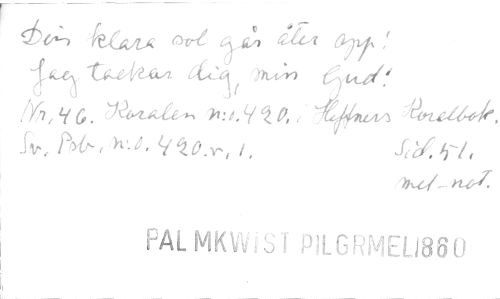 Din klara sol går åter opp!
Jag tackar dig, min Gud!
Nr. 46. Koralen n:o. 420. i Heffners Koralbok.
Sv. Psb. n:o. 420. v. 1. Sid. 51.
mel-not.
PALMKWIST PILGRMEL1860